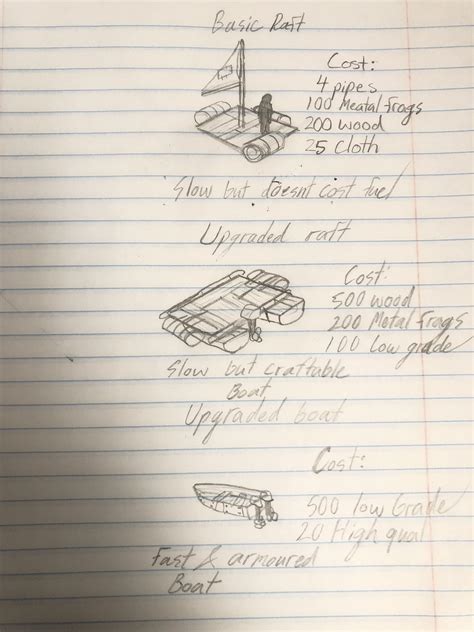 Basic Raft
Cost:
4 pipes
100 Meatal frags
200 wood
25 Cloth
Slow but doesnt cost fuel
Upgraded raft
Cost:
500 wood
200 Metal frags
100 Low grade
Slow but craftable
Boat
Upgraded boat
Cost:
500 low Grade
20 High qual
Fast & armoured
Boat